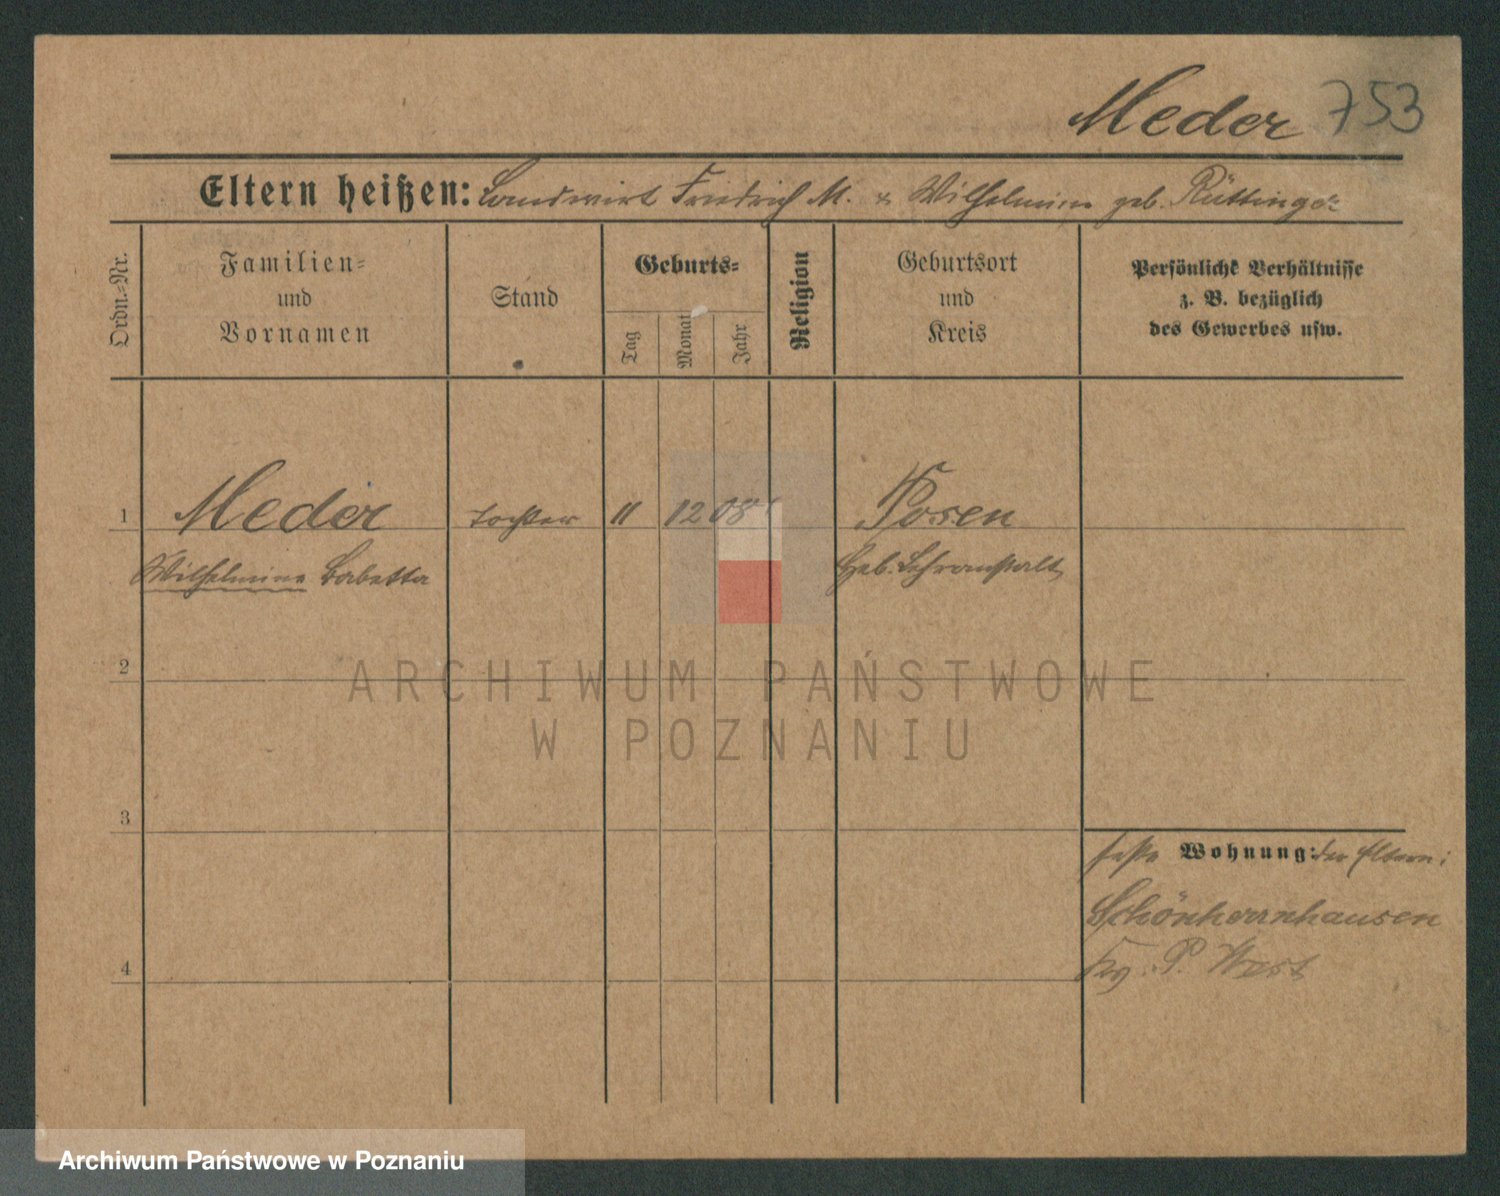 Meder 753
Eltern heißen: Landwirt Friedrich M. u Wilhelmine geb. Rüttinger
Ordn.=Nr.
Familien=
und
Vornamen
Stand
Geburts=
Tag
Monat
Jahr
Religion
Geburtsort
und
Kreis
Persönliche Verhältnisse
z. B. bezüglich
des Gewerbes usw.
1 Meder Tochter 11 12 08 Posen
Wilhelmine Babetta Heb. Lehranstalt
2
ARCHIWUM PAŃSTWOWE
W POZNANIU
3
feste Wohnung: der Eltern:
Schönherrnhausen
4 Kr. P. West
Archiwum Państwowe w Poznaniu